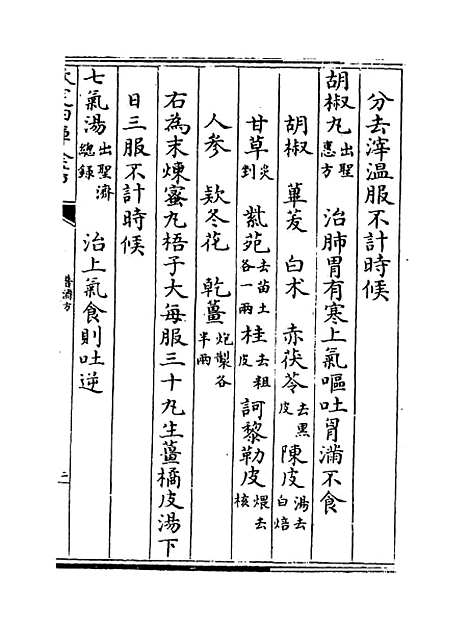 分去滓温服不計時候
胡椒丸出聖惠方 治肺胃有寒上氣嘔吐胷滿不食
胡椒 蓽茇 白术 赤茯苓去黑皮 陳皮湯去白焙
甘草炙剉 紫菀去苗土各一兩 桂去粗皮 訶黎勒皮煨去核
人參 欵冬花 乾薑炮製各半兩
右為末煉蜜丸梧子大每服三十丸生薑橘皮湯下
日三服不計時候
七氣湯出聖濟總錄 治上氣食則吐逆
普濟方
三